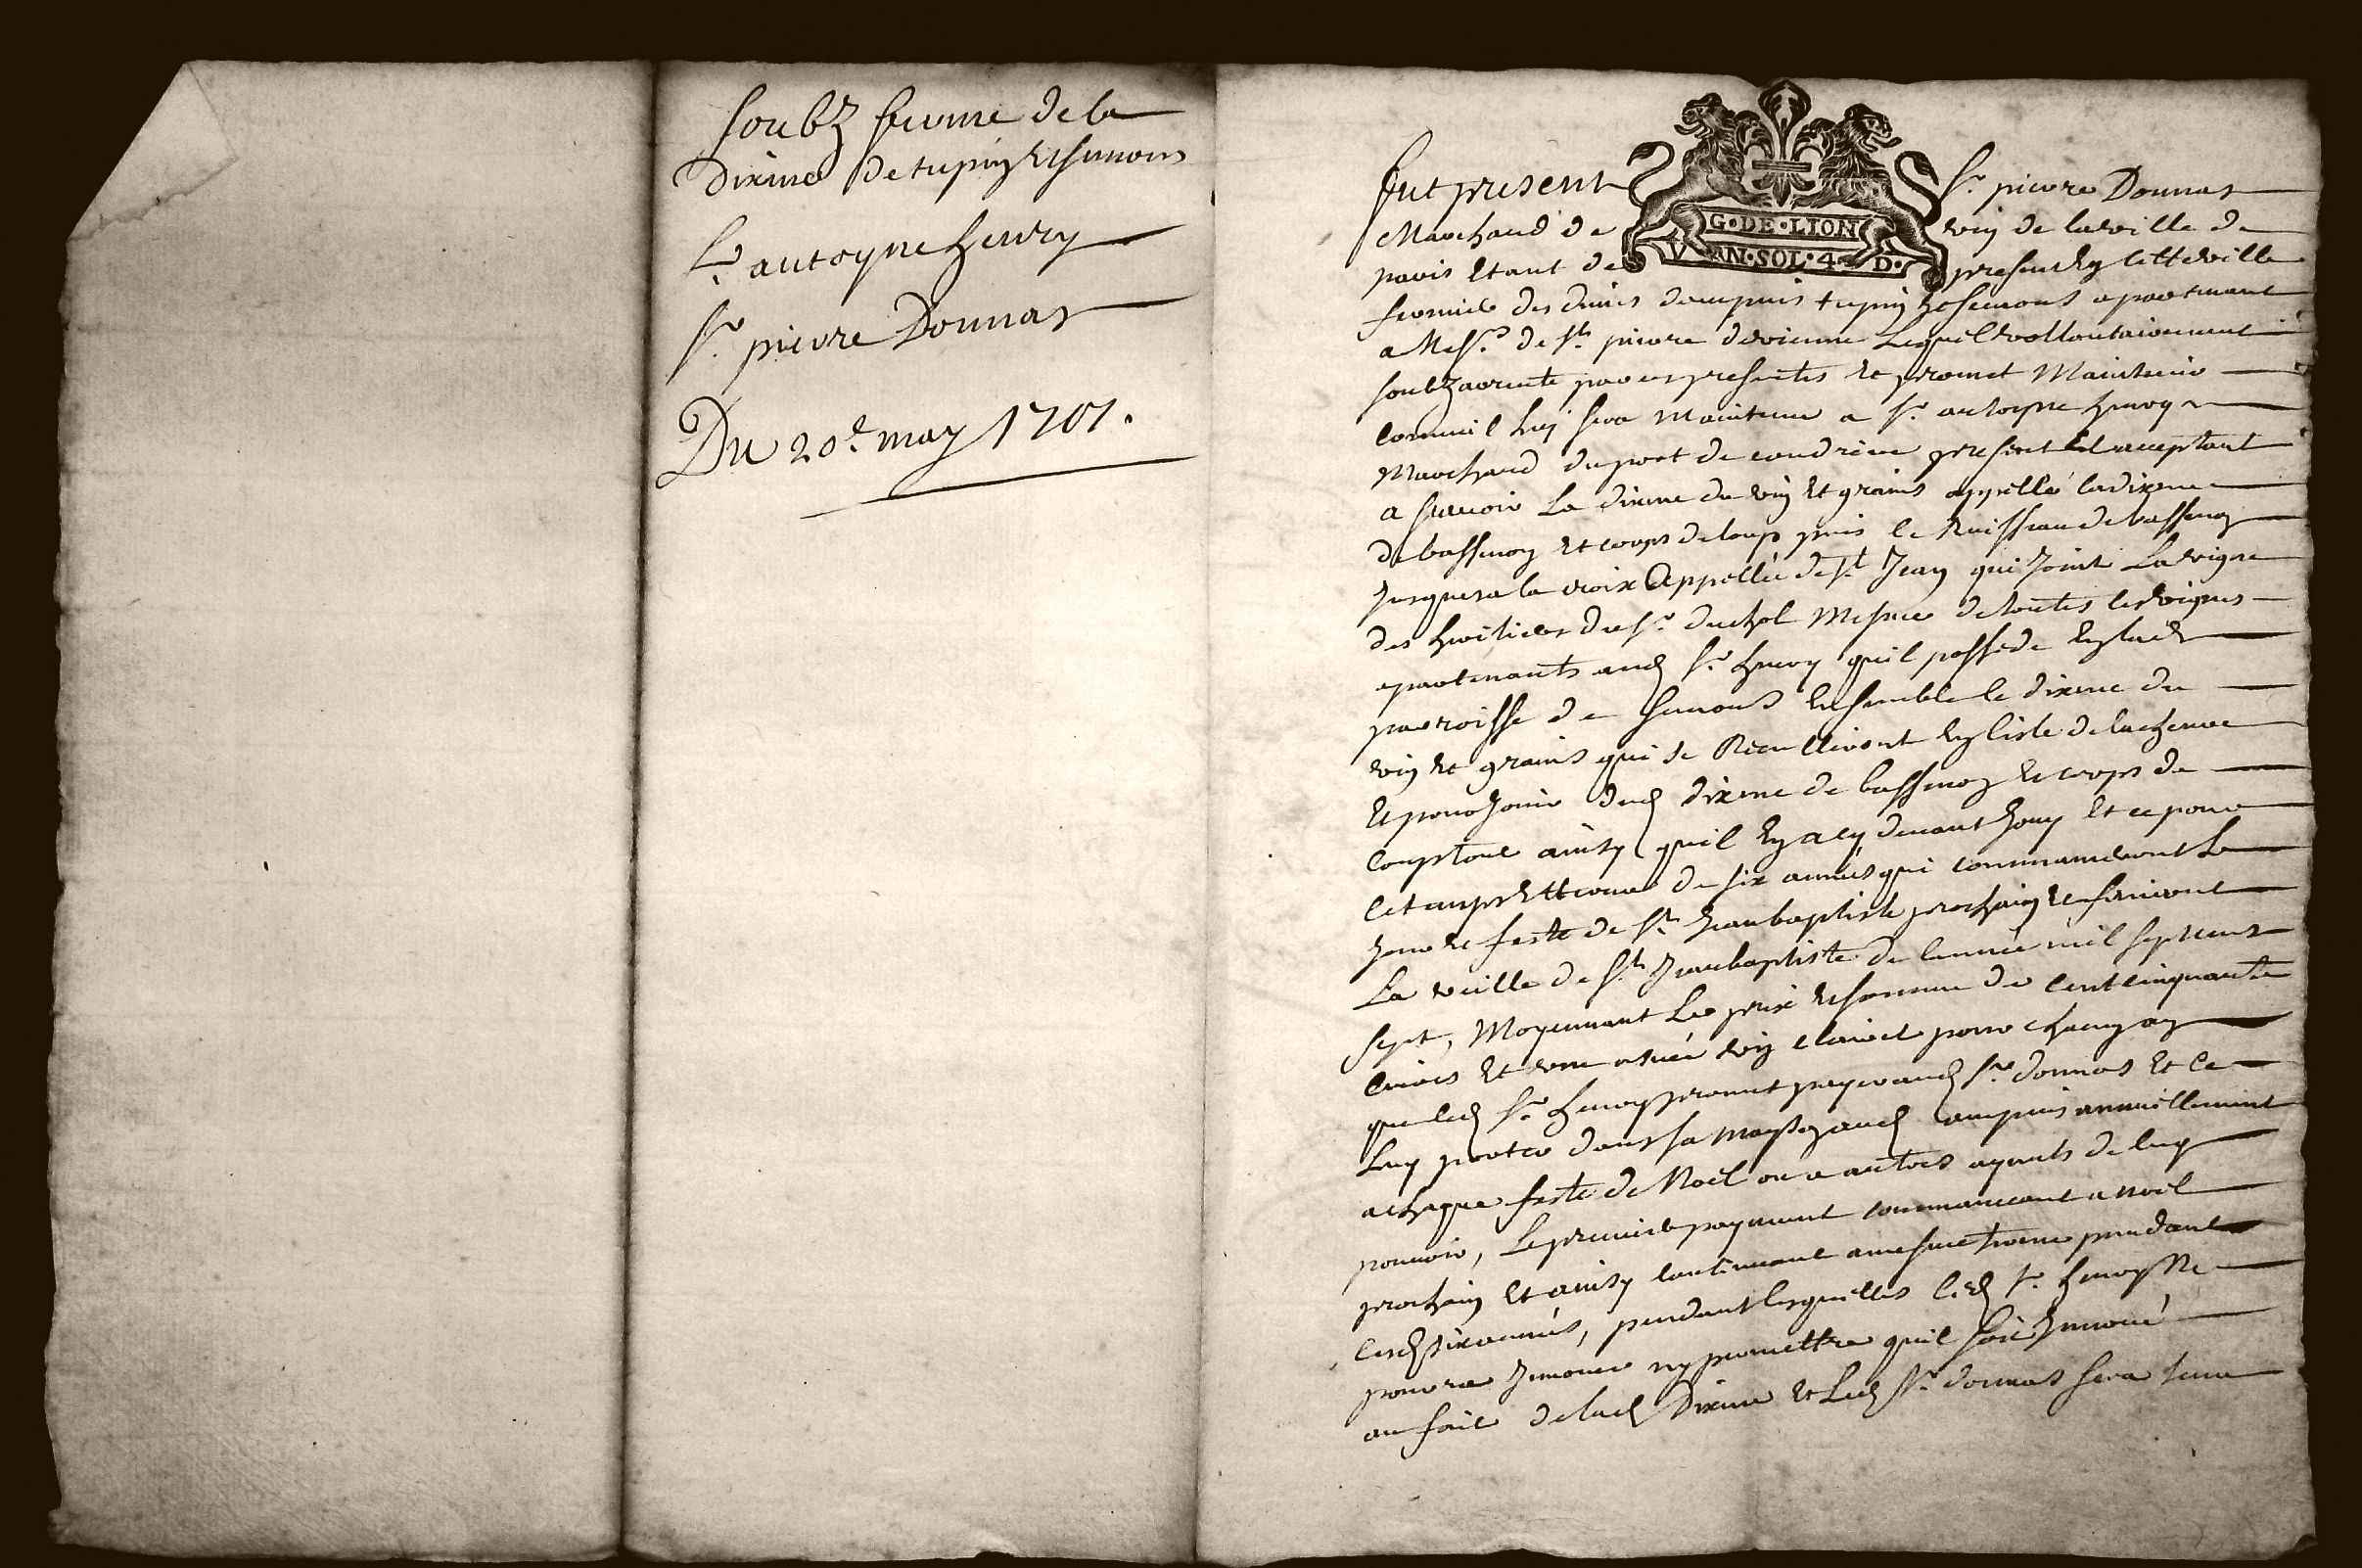 soubz ferme de la
dixme de tupin et semons
Sr. antoyne henry
Sr. pierre Donnas
Du 20e. may 1701.
fut present Sr. pierre Donnas
Marchand de vin de la ville de
paris etant de present en cette ville
fermier des dimes tupin et semons apartenant
a Messrs. de St. pierre de vienne Lequel vollontairement
soubzarente par ces presentes et promet Maintenir
comme il luy sera Maintenu a Sr. antoyne henry
Marchand du port de condrieu present et acceptant
a scauoir La dixme du vin et grains appellé la dixme
de bassenon et coups de loup puis le Ruisseau de bassenon
jusques a la croix Appellée de St. Jean qui joint La vigne
des heritiers du Sr. duchol de toutes les vignes
apartenants aud Sr. henry quil possede en lad
parroisse de semons Ensemble le dixme du
vin et grains qui se Recueilliront en l'isle de la chevre
Et pour jouir dud dixme de bassenon et coups de
ainsy quil en a cy deuant jouy et ce pour
le temps et terme de six années qui commanceront Le
jour et feste de St. jean baptiste prochain et finiront
La veille de St. Jean baptiste de lannée mil sept cent
sept, Moyennant Le prix et somme de cent cinquante
livres et une anée vin clairet pour chacun an
que led Sr. henry promet payer aud Sr. donnas et le
Luy porter dans sa maison aud ampuis annuellement
a chaque feste de Noel ou a autres ayants de luy
pouuoir, Le premier payement commancant a noel
prochain et ainsy continuant a mesme terme pendant
lesd six années, pendant lesquelles led Sr. henry Ne
pourra jnnouer ny permettre quil soit jnnoué
au fait de lad Dixme et Led Sr. donnas sera tenu
G·DE·LION
V N·SOL·4·D·